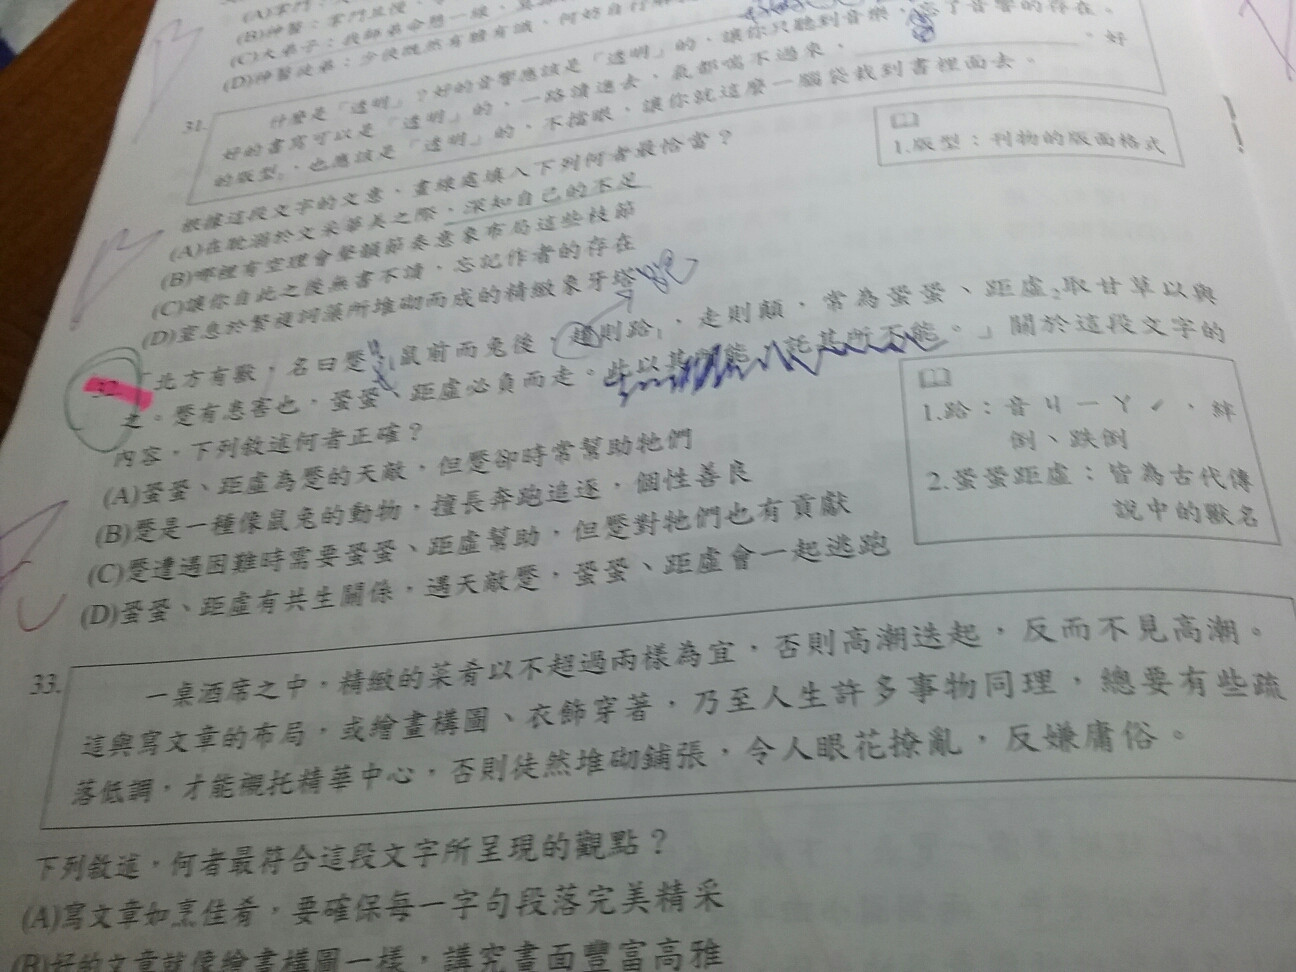 (D)神醫徒弟：少俠既然有膽有識，何妨自行
31.
什麼是「透明」？好的音響應該是「透明」的，讓你只聽到音樂，忘了音響的存在。
好的書寫可以是「透明」的，一路讀過去，氣都喘不過來，　　　　　　。好
的版型1，也應該是「透明」的，不擋眼，讓你就這麼一腦袋栽到書裡面去。
1.版型：刊物的版面格式
根據這段文字的文意，畫線處填入下列何者最恰當？
(A)在耽溺於文采華美之際，深知自己的不足
(B)哪裡有空理會聲韻節奏意象布局這些枝節
(C)讓你自此之後無書不讀，忘記作者的存在
(D)窒息於繁複詞藻所堆砌而成的精緻象牙塔
32.
「北方有獸，名曰蹷，鼠前而兔後，趨則跲1，走則顛，常為蛩蛩、距虛2取甘草以與
之。蹷有患害也，蛩蛩、距虛必負而走。此以其所能，託其所不能。」關於這段文字的
內容，下列敘述何者正確？
(A)蛩蛩、距虛為蹷的天敵，但蹷卻時常幫助牠們
(B)蹷是一種像鼠兔的動物，擅長奔跑追逐，個性善良
(C)蹷遭遇困難時需要蛩蛩、距虛幫助，但蹷對牠們也有貢獻
(D)蛩蛩、距虛有共生關係，遇天敵蹷，蛩蛩、距虛會一起逃跑
1.跲：音ㄐㄧㄚˊ，絆
倒、跌倒
2.蛩蛩距虛：皆為古代傳
說中的獸名
33.
一桌酒席之中，精緻的菜肴以不超過兩樣為宜，否則高潮迭起，反而不見高潮。
這與寫文章的布局，或繪畫構圖、衣飾穿著，乃至人生許多事物同理，總要有些疏
落低調，才能襯托精華中心，否則徒然堆砌鋪張，令人眼花撩亂，反嫌庸俗。
下列敘述，何者最符合這段文字所呈現的觀點？
(A)寫文章如烹佳肴，要確保每一字句段落完美精采
(B)好的文章就像繪畫構圖一樣，講究畫面豐富高雅